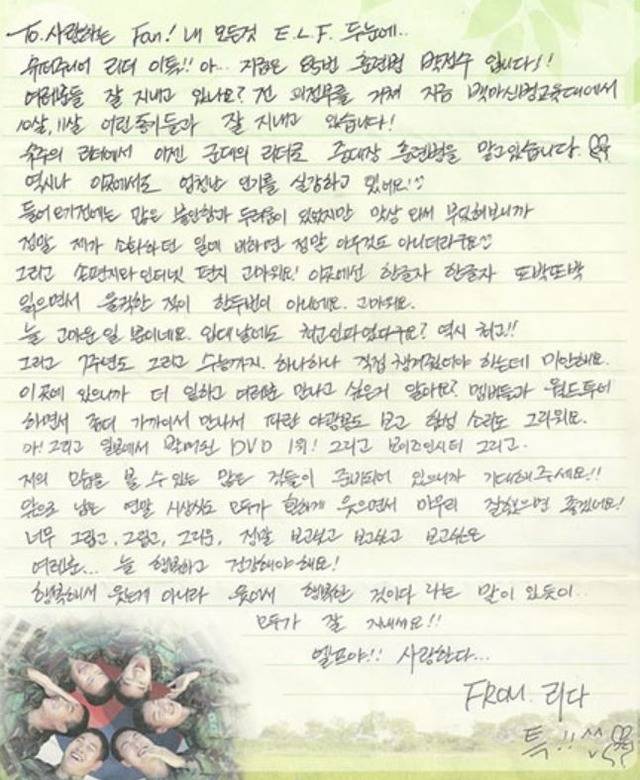 To. 사랑하는 Fan! 내 모든것 E.L.F. 두눈에..
슈퍼주니어 리더 이특!! 아... 지금은 85번 훈련병 박정수 입니다!!
여러분들 잘 지내고 있나요? 전 306보충대를 거쳐 지금 백마신병교육대에서
10살, 11살 어린 동기들과 잘 지내고 있습니다!
슈주의 리더에서 이젠 군대의 리더로 중대장 훈련병을 맡고있습니다.
역시나 이곳에서도 엄청난 인기를 실감하고 있네요!
들어오기전에는 많은 불안함과 두려움이 있었지만 막상 와서 부딪혀보니까
정말 제가 소화하던 일에 비하면 정말 아무것도 아니더라구요
그리고 손편지와 인터넷 편지 고마워요! 이곳에선 한글자 한글자 또박또박
읽으면서 울컥한 적이 한두번이 아니에요. 고마워요.
늘 고마운 일 뿐이네요. 입대날에도 최고인파였다구요? 역시 최고!!
그리고 7주년도 그리고 수능까지. 하나하나 직접 챙겨줬어야 하는데 미안해요.
이곳에 있으니까 더 일하고 여러분 만나고 싶은거 알아요? 멤버들과 월드투어
하면서 좀더 가까이서 만나서 파란 야광봉도 보고 함성 소리도 그리워요.
아! 그리고 일본에서 DVD 1위! 그리고 보이즈인시티 그리고..
저의 모습을 볼 수 있는 많은 것들이 준비되어 있으니까 기대해주세요!!
앞으로 남은 연말 시상식도 모두가 환하게 웃으면서 마무리 잘했으면 좋겠네요!
너무 그립고, 그립고, 그리운, 정말 보고싶고 보고싶고 보고싶은
여러분... 늘 행복하고 건강해야해요!
행복해서 웃는게 아니라 웃어서 행복한 것이다 라는 말이 있듯이..
모두가 잘 지내세요!!
엘프야!! 사랑한다...
FROM. 리다
특!!